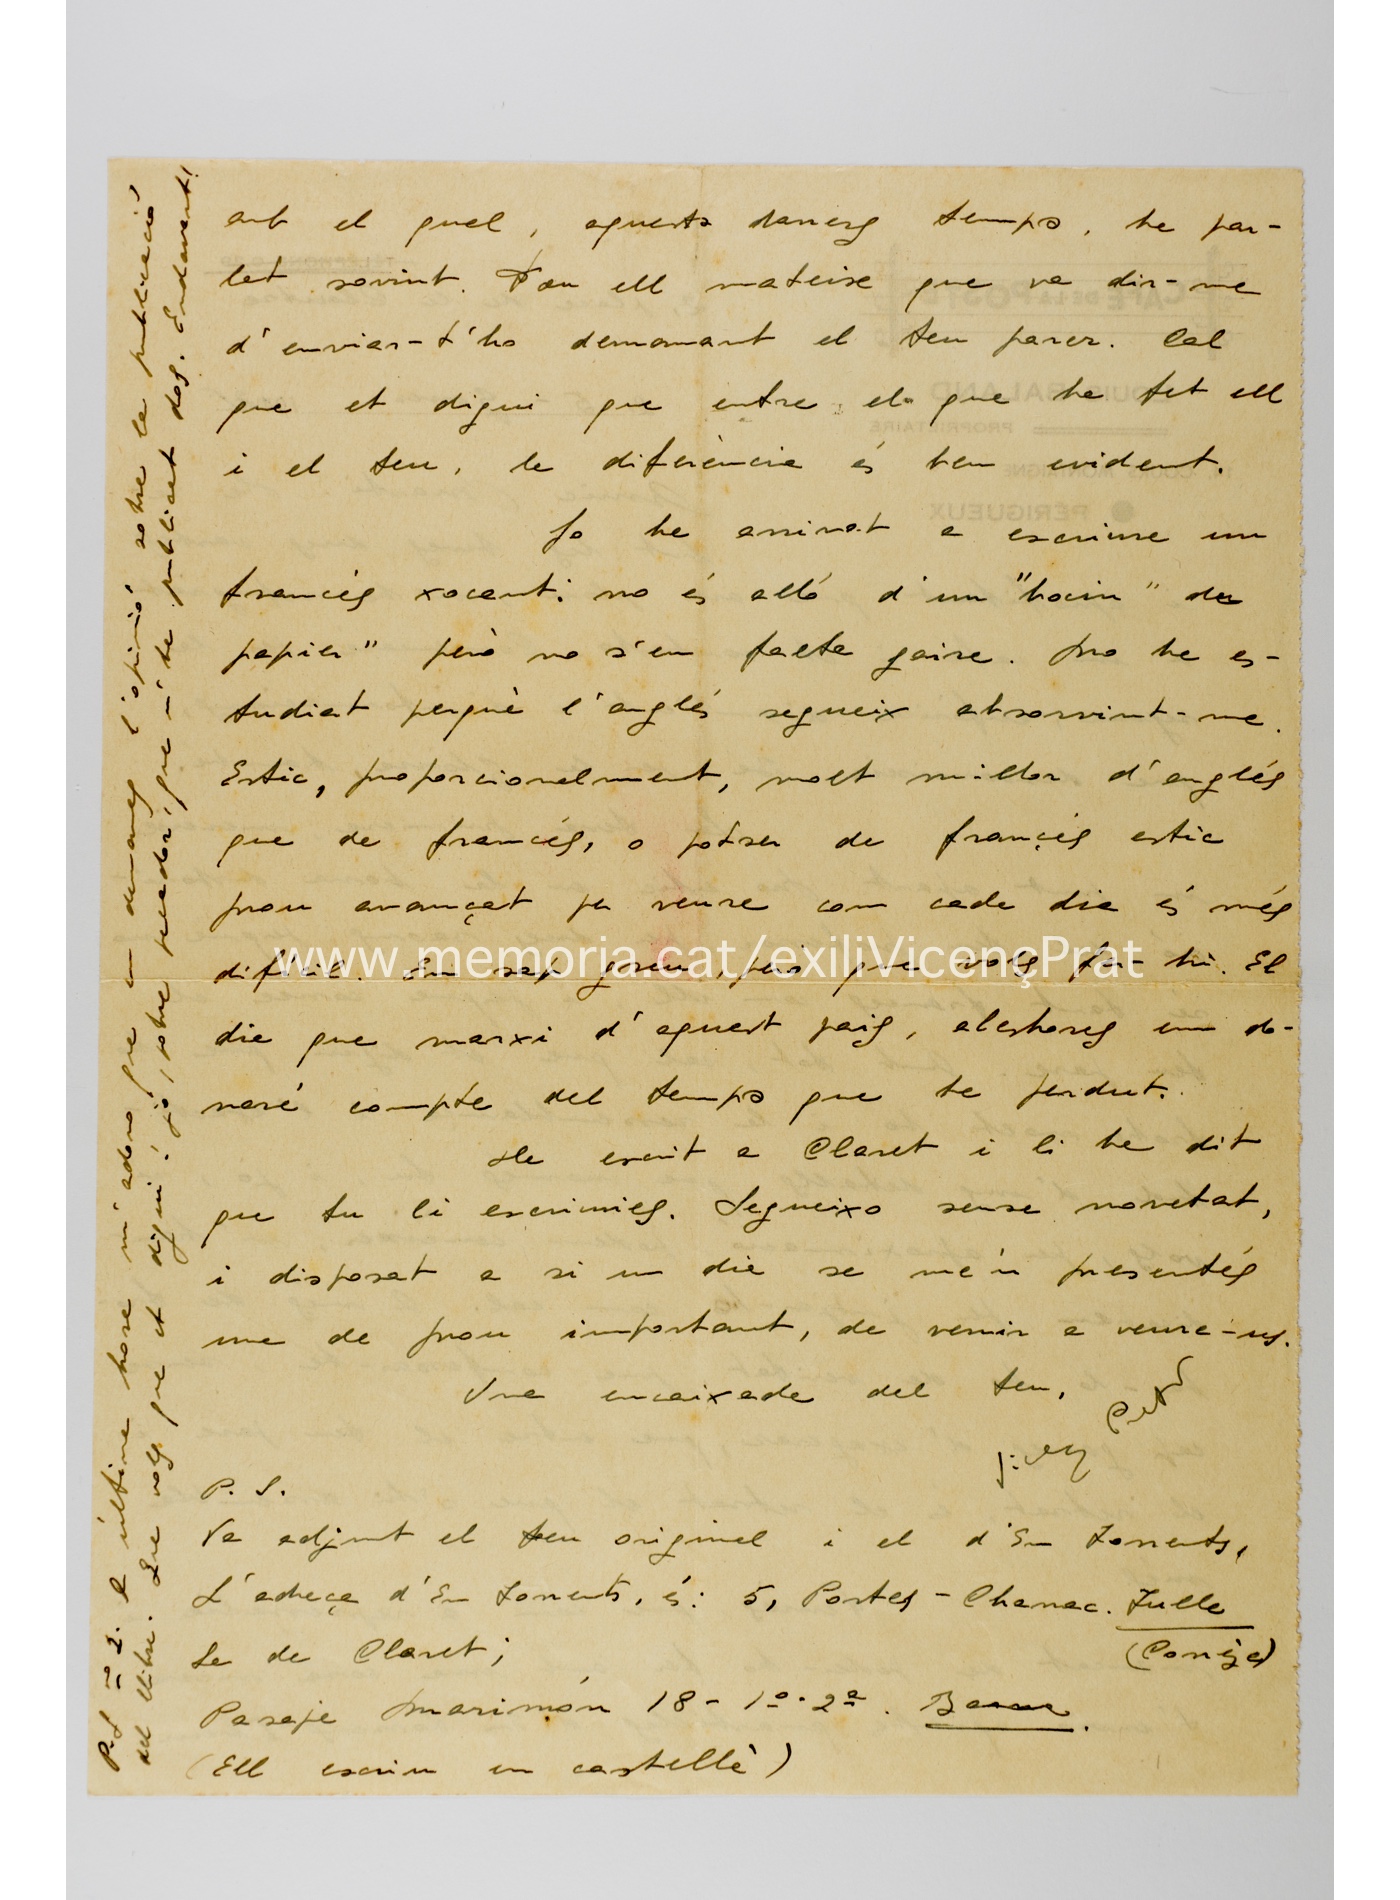 amb el qual, aquests darrers temps, he par-
lat sovint. Fou ell mateixe que va dir-me
d'enviar-t'ho demanant el teu parer. Cal
que et digui que entre el que ha fet ell
i el teu, la diferència és ben evident.
Jo he arrivat a escriure un
francés xocant: no és allò d'un "bocin" de
papier" però no s'en falta gaire. No he es-
tudiat perquè l'anglés segueix absorvint-me.
Estic, proporcionalment, molt millor d'anglés
que de francés, o potser de françés estic
prou avançat per veure com cada dia és més
difícil. Em sap greu, però que vols fer-hi. El
dia que marxi d'aquest país, aleshores em do-
naré compte del temps que he perdut.
He escrit a Claret i li he dit
que tu li escriuries. Segueixo sense novetat,
i disposat a si un dia se me'n presentés
una de prou important, de venir a veure-us.
Una encaixada del teu,
Vicenç Prat
P. S.
Va adjunt el teu original i el d'En Torrents,
L'adreça d'En Torrents, és: 5, Portes-Chanac. Tulle
(Corrèze)
La de Claret;
Pasaje Marimón 18-1º-2ª. Barna.
(Ell escriu en castellà)
P.S nº 2. A última hora m'adono que em demanes l'opinió sobre la publicació
del llibre. Que vols que et digui! jo, pobre pecador, que n'he publicat dos. Endavant!
www.memoria.cat/exiliVicençPrat
CAFÉ DE LA POSTE
PROPRIÉTAIRE
PÉRIGUEUX